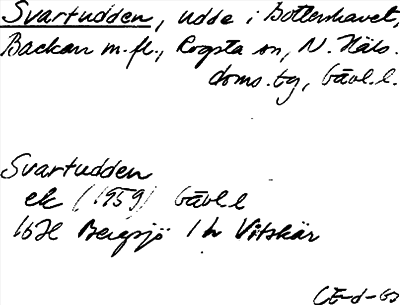 Svartudden, udde i Bottenhavet,
Backan m.fl., Rogsta sn, N. Häls.
doms.tg, Gävl.l.
Svartudden
ek (1959) Gävl.l
16H Bergsjö 1h Vitskär